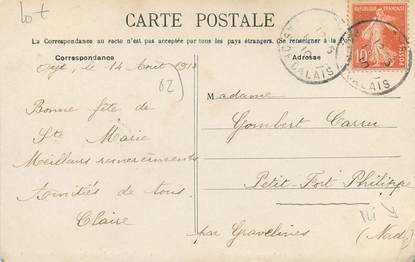 lot
CARTE POSTALE
La Correspondance au recto n'est pas acceptée par tous les pays étrangers. Se renseigner à la
Correspondance
Adresse
RÉPUBLIQUE FRANÇAISE
10
POSTES
CALAIS
le 14 Août 1910
62
Bonne fête de
Ste Marie
Meilleurs remerciements
Amitiés de tous.
Claire
Madame
Gombert Carru
Petit-Fort Philippe
par Gravelines (Nord)